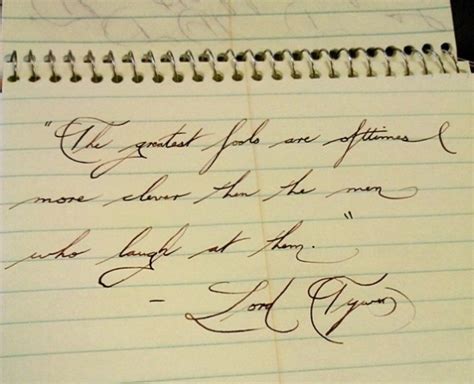 "The greatest fools are ofttimes
more clever then the men
who laugh at them."
- Lord Tywin